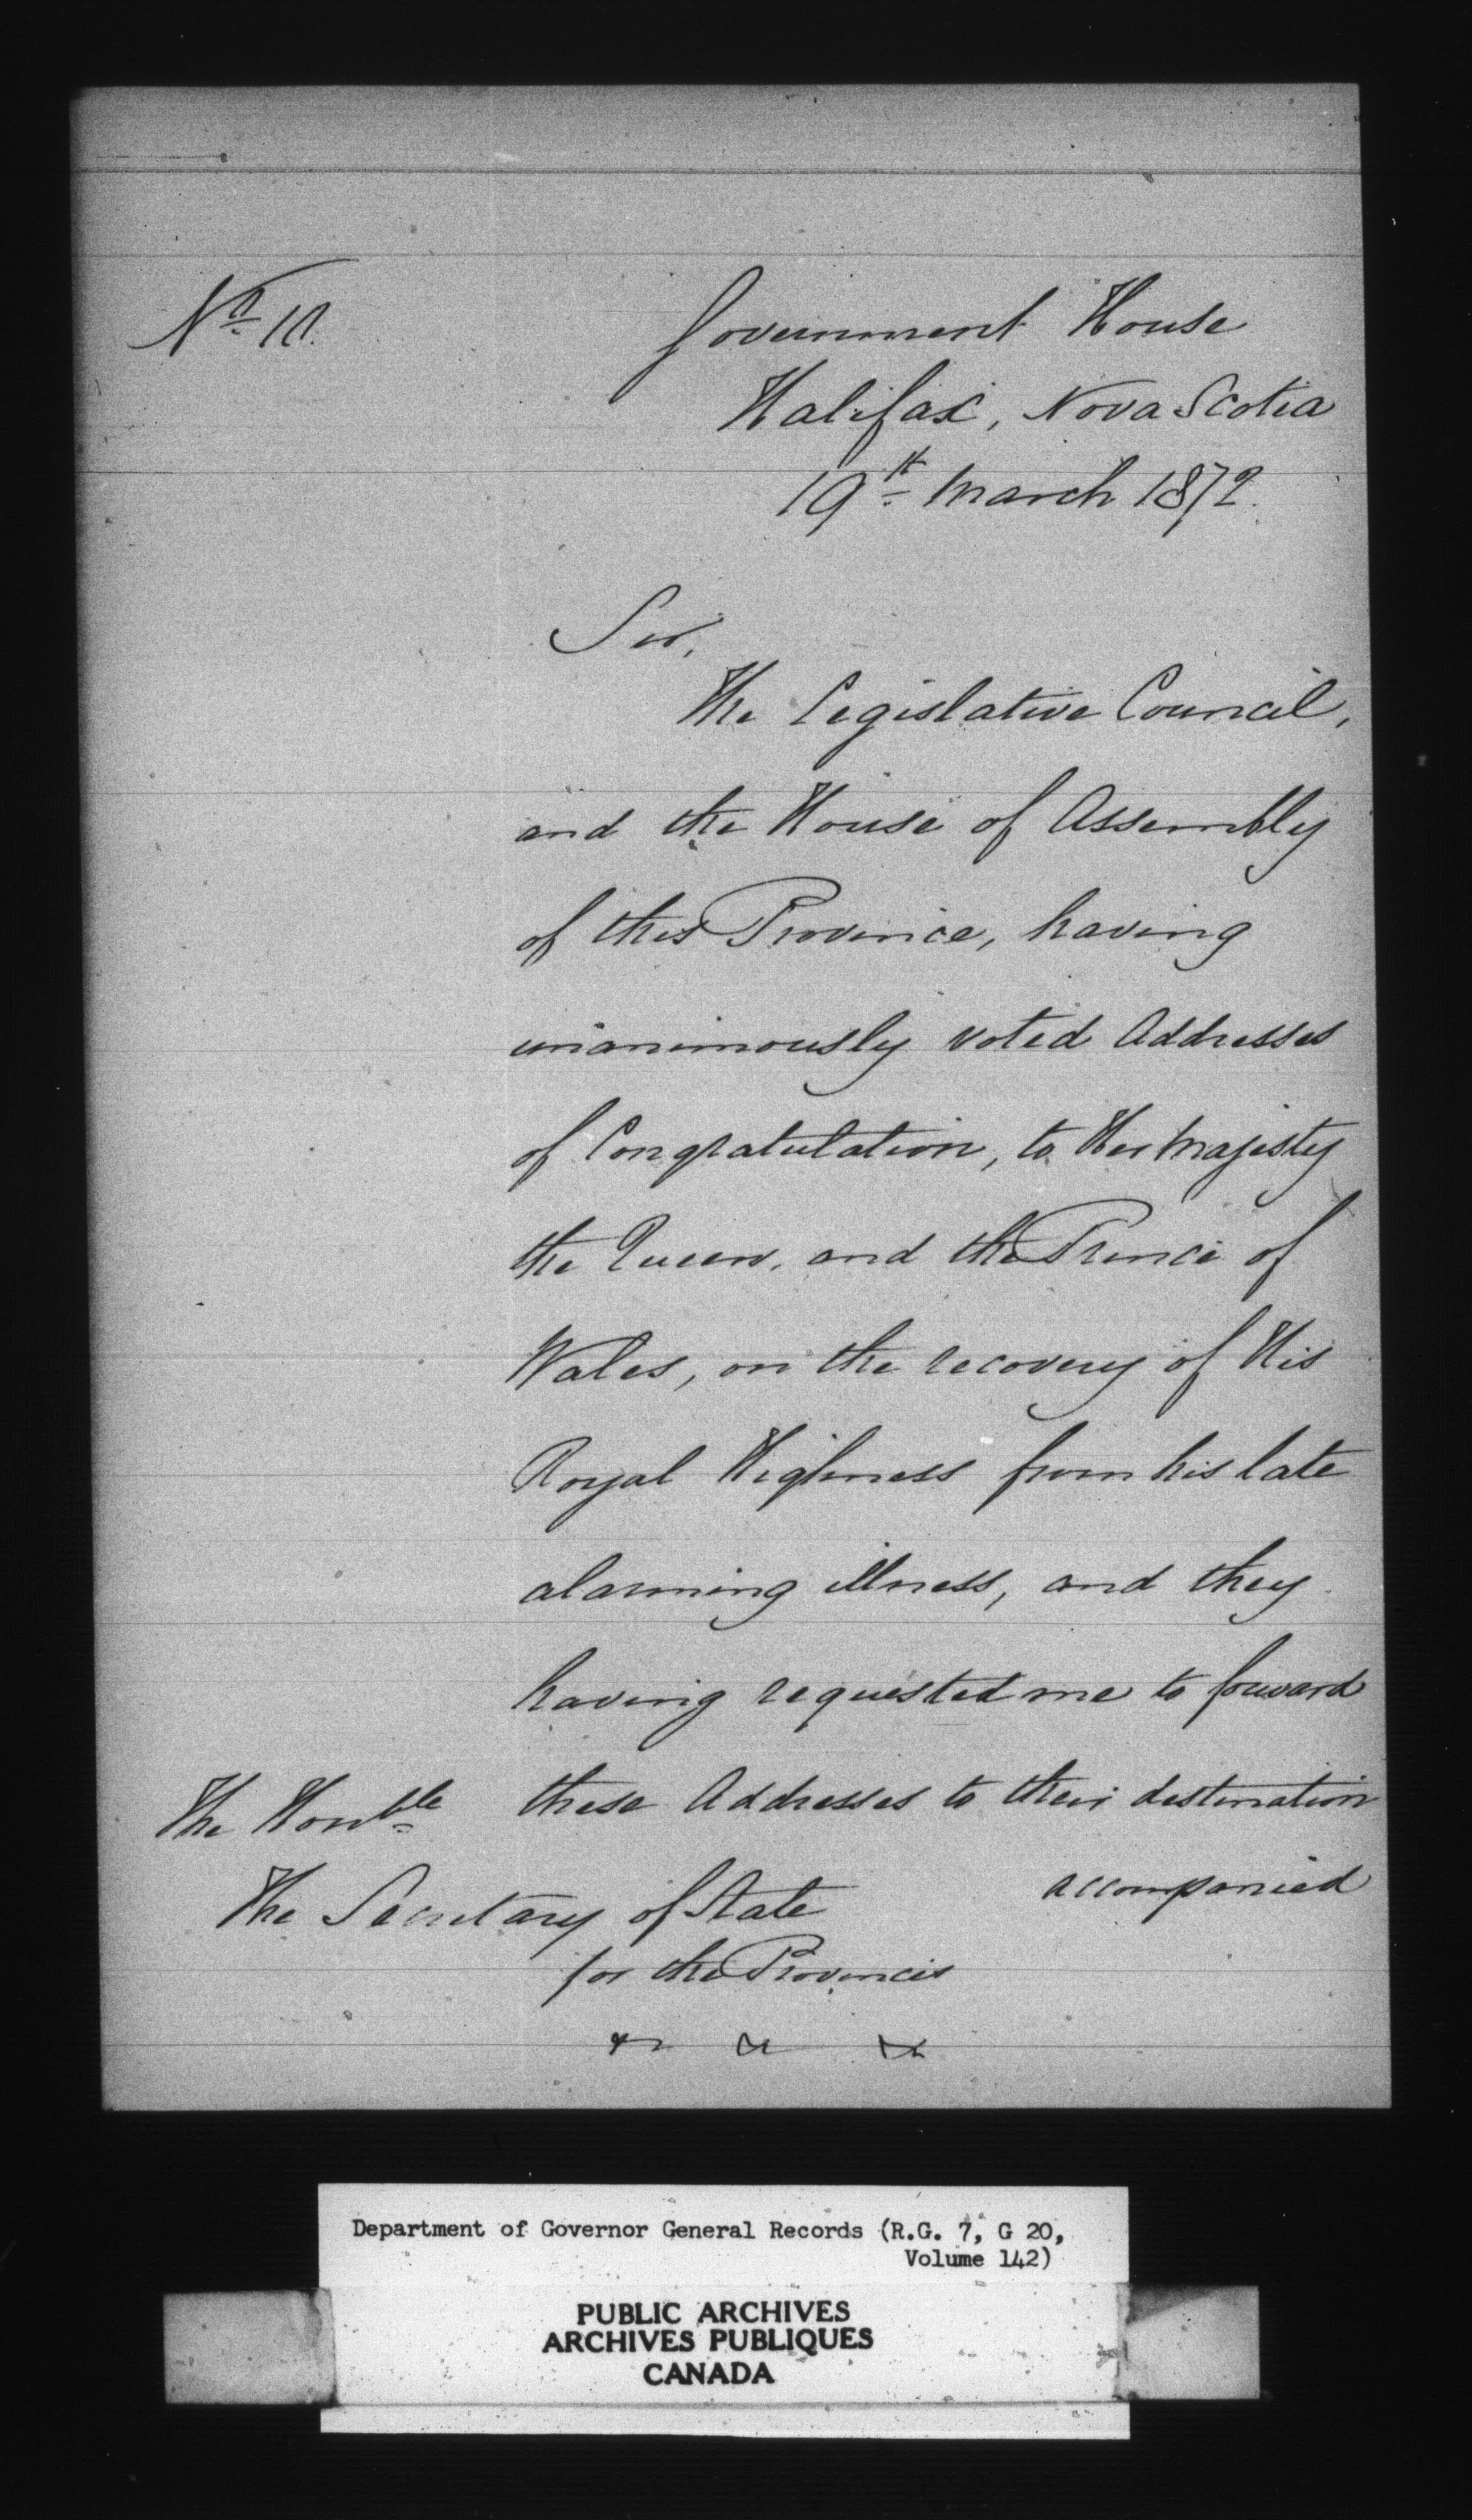 No 11.
Government House
Halifax, Nova Scotia
19th March 1872.
Sir,
The Legislative Council,
and the House of Assembly
of this Province, having
unanimously voted Addresses
of Congratulation, to Her Majesty
the Queen, and the Prince of
Wales, on the recovery of His
Royal Highness from his late
alarming illness, and they
having requested me to forward
these Addresses to their destination
accompanied
The Honble
The Secretary of State
for the Provinces
Department of Governor General Records (R.G. 7, G 20,
Volume 142)
PUBLIC ARCHIVES
ARCHIVES PUBLIQUES
CANADA